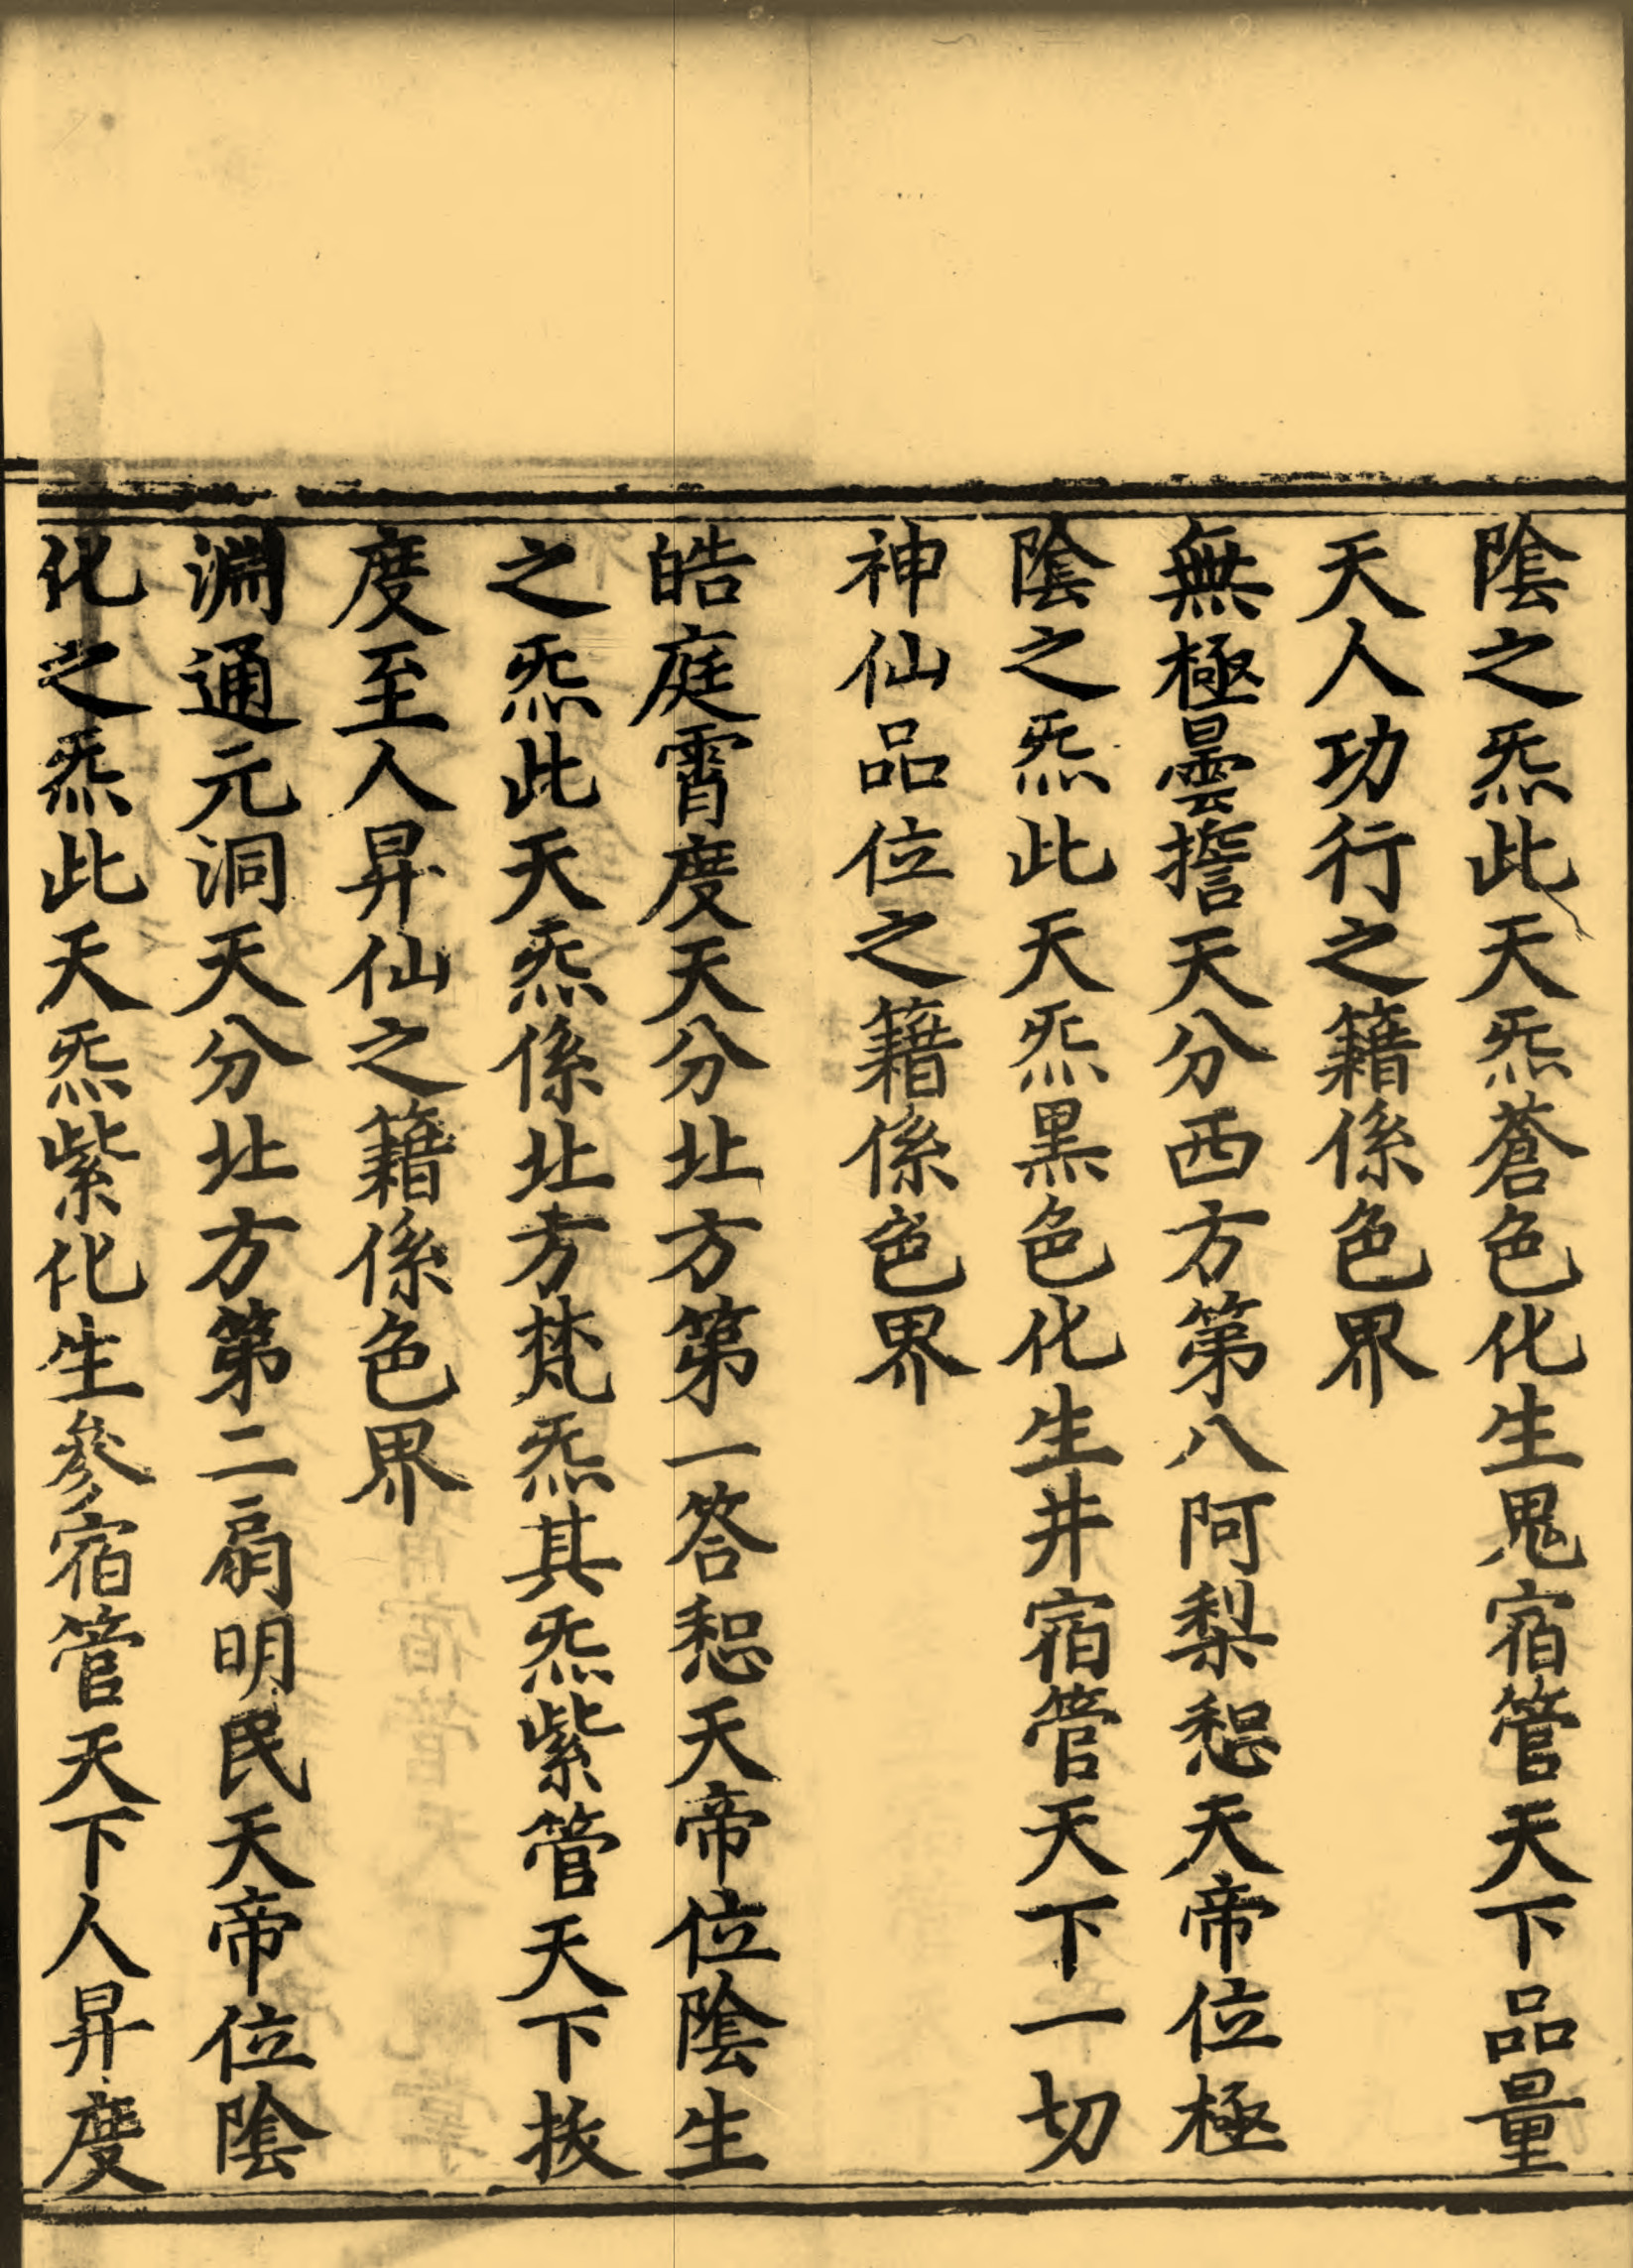 陰之炁此天炁蒼色化生鬼宿管天下品量
天人功行之籍係色界
無極曇擔天分西方第八阿梨惒天帝位極
陰之炁此天炁黒色化生井宿管天下一切
神仙品位之籍係色界
皓庭霄度天分北方第一答惒天帝位陰生
之炁此天炁係北方梵炁其炁紫管天下拔
度至人昇仙之籍係色界
淵通元洞天分北方第二扇明民天帝位陰
化之炁此天炁紫化生參宿管天下人昇度